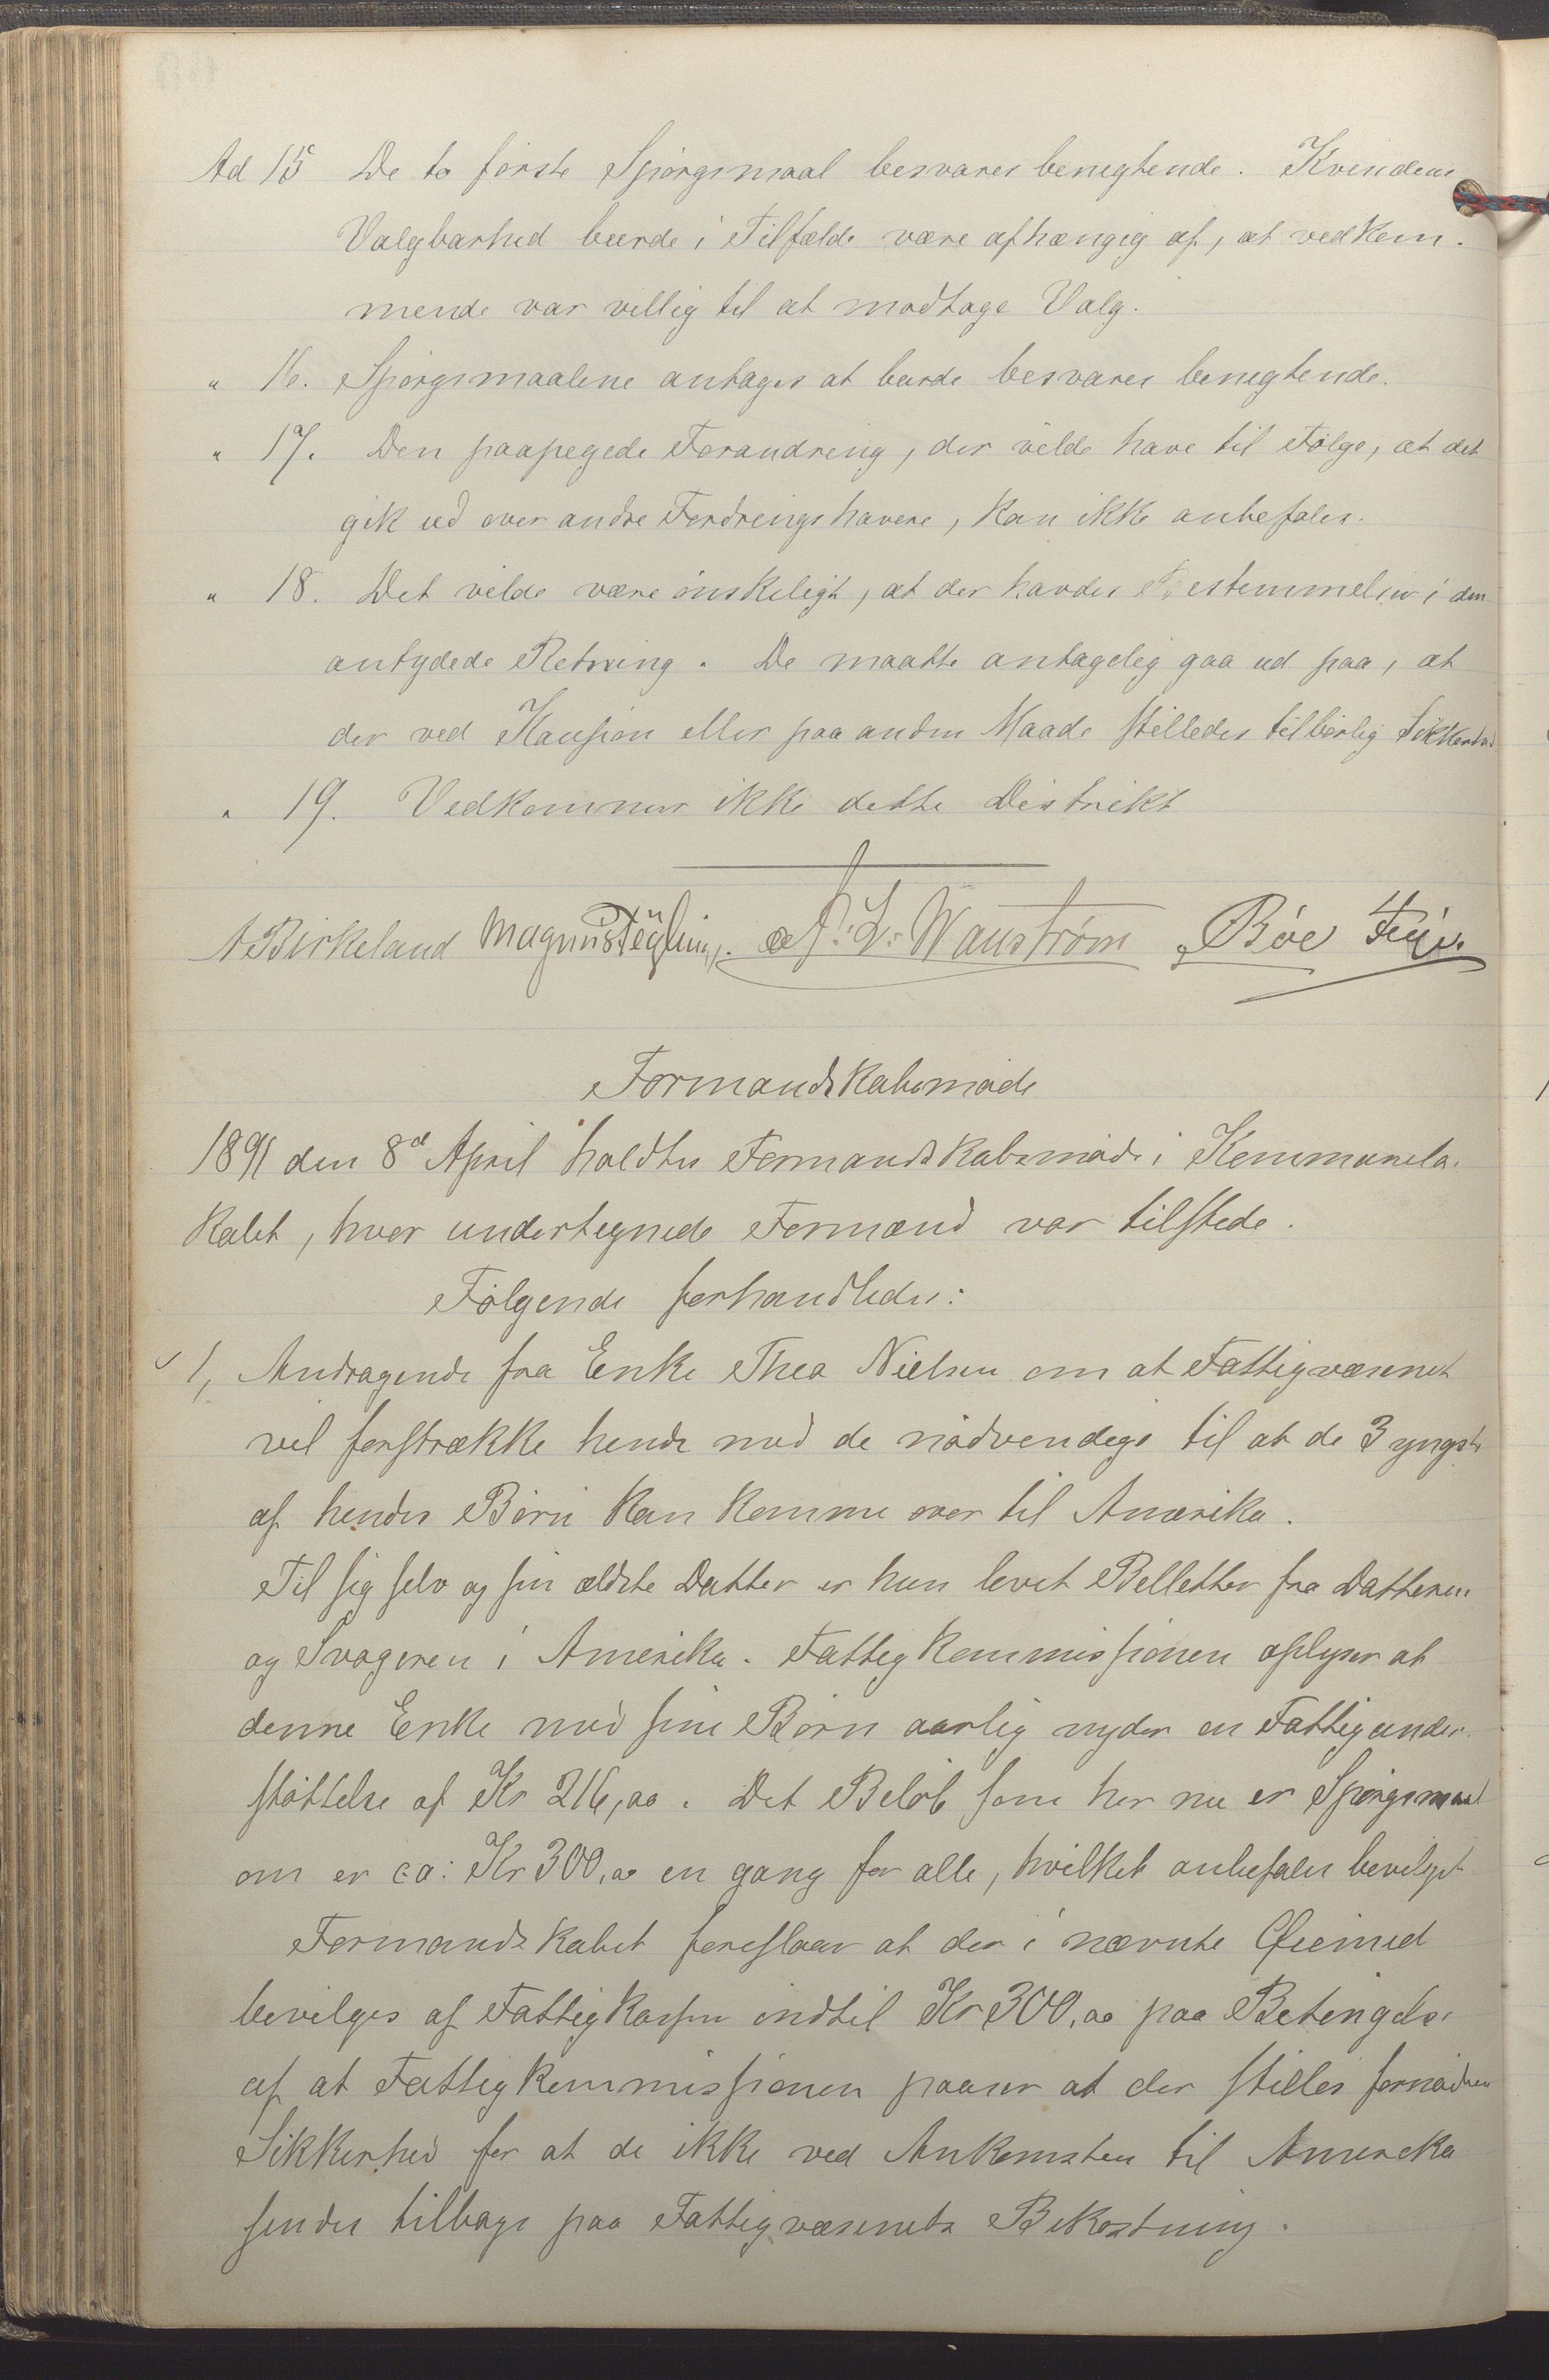 Ad 15 De to første Spørgsmaal besvares benegtende. Kvindens
Valgbarhed burde i Tilfælde være afhængig af, at vedkom-
mende var villig til at modtage Valg.
" 16. Spørgsmaalene antages at burde besvares benegtende.
" 17. Den paapegede Forandring, der vilde have til Følge, at det
gik ud over andre Fordringshavere, kan ikke anbefales.
" 18. Det vilde være ønskeligt, at der havdes Bestemmelser i den
antydede Retning. De maatte antagelig gaa ud paa, at
der ved Kaution eller paa anden Maade stilledes tilbørlig Sikkerhed
" 19. Vedkommer ikke dette Distrikt
A Birkeland Magnus L. Wanstrøm Bøe
Formandskabsmøde
1891 den 8d April holdtes Formandskabsmøde i Kommunelo-
kalet, hvor undertegnede Formænd var tilstede.
Følgende forhandledes:
1, Andragende fra Enke Thea Nielsen om at Fattigvæsenet
vil forstrække hende med de nødvendige til at de 3 yngste
af hendes Børn kan komme over til Amerika.
Til sig selv og sin ældste Datter er hun lovet Billetter fra Datteren
og Svogeren i Amerika. Fattigkommissionen oplyser at
denne Enke med sine Børn aarlig nyder en Fattigunder-
støttelse af Kr 216,00. Det Beløb som her nu er Spørgsmaal
om er ca: Kr 300,00 en gang for alle, hvilket anbefales bevilget
Formandskabet foreslaar at der i nævnte Øiemed
bevilges af Fattigkassen indtil Kr 300,00 paa Betingelse
af at Fattigkommissionen paaser at der stilles fornøden
Sikkerhed for at de ikke ved Ankomsten til Amerika
sendes tilbage paa Fattigvæsenets Bekostning.